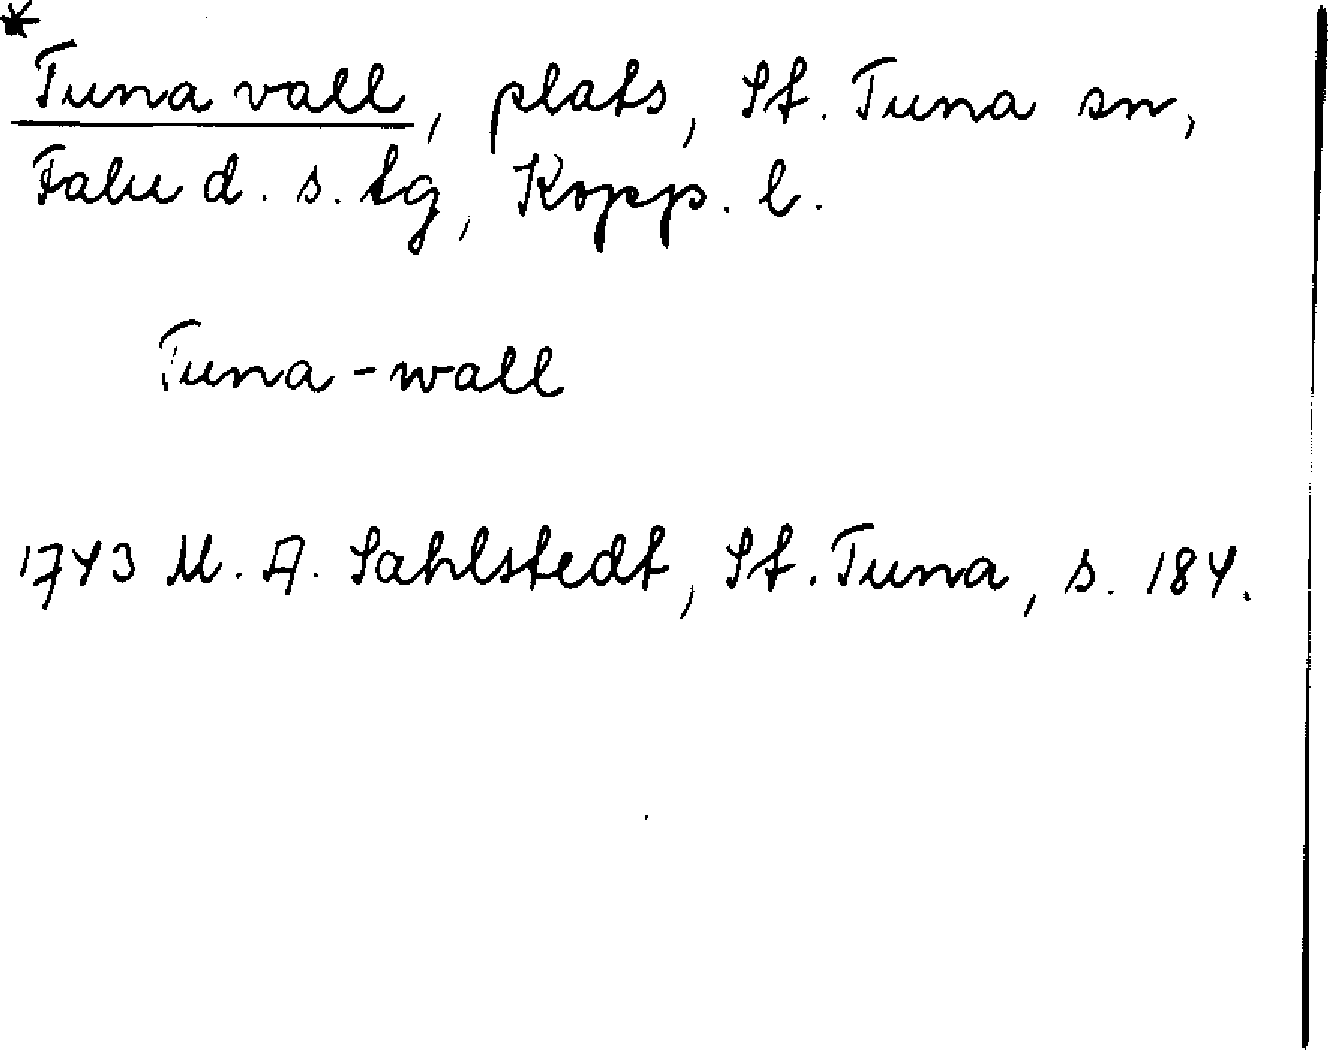 *
Tuna vall, plats, St. Tuna sn,
Falu d. s. tg, Kopp. l.
Tuna-wall
1743 M. A. Sahlstedt, St. Tuna, s. 184.